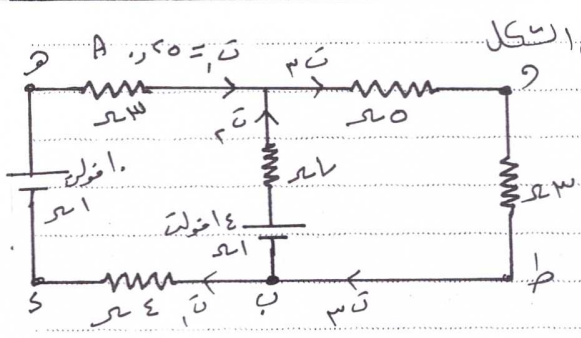 الشكل
هـ
ت١ = ٠,٢٥ A
ت٣
و
٣Ω
٥Ω
ت٢
١٠ فولت
١Ω
٢Ω
٣Ω
١٤ فولت
١Ω
د
٤Ω
ت١
ب
ت٣
ط